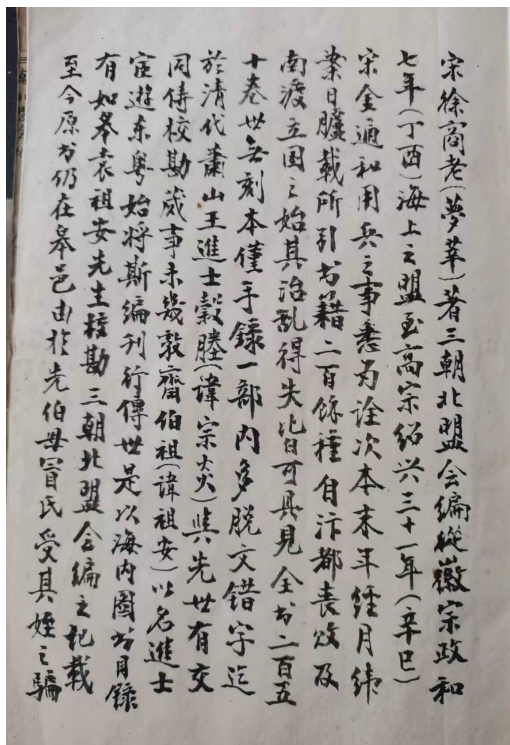 宋徐商老(夢莘)著三朝北盟会编從徽宗政和
七年(丁酉)海上之盟至高宗绍兴三十一年(辛巳)
宋金通和用兵之事悉为诠次本末年经月纬
案日臚载所引书籍二百餘種自汴都丧败及
南渡立国之始其治乱得失比皆可具見全书二百五
十卷世无刻本僅手錄一部内多脱文错字迄
於清代蕭山王進士穀塍(諱宗炎)與先世有交
同俦校勘蒇事未幾敦齋伯祖(諱祖安)以名進士
宦遊东粤始将斯编刊行傳世是以海内圖书目錄
有如皋袁祖安先生校勘三朝北盟会编之记載
至今原书仍在皋邑由於先伯母冒氏受其姪之騙